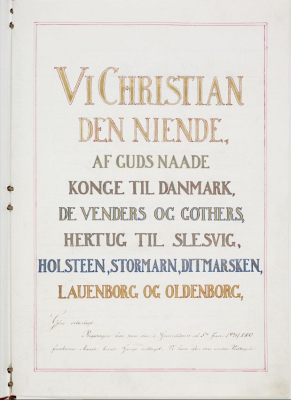 VI CHRISTIAN
DEN NIENDE,
AF GUDS NAADE
KONGE TIL DANMARK,
DE VENDERS OG GOTHERS,
HERTUG TIL SLESVIG,
HOLSTEEN, STORMARN, DITMARSKEN,
LAUENBORG OG OLDENBORG,
Gjøre vitterligt: